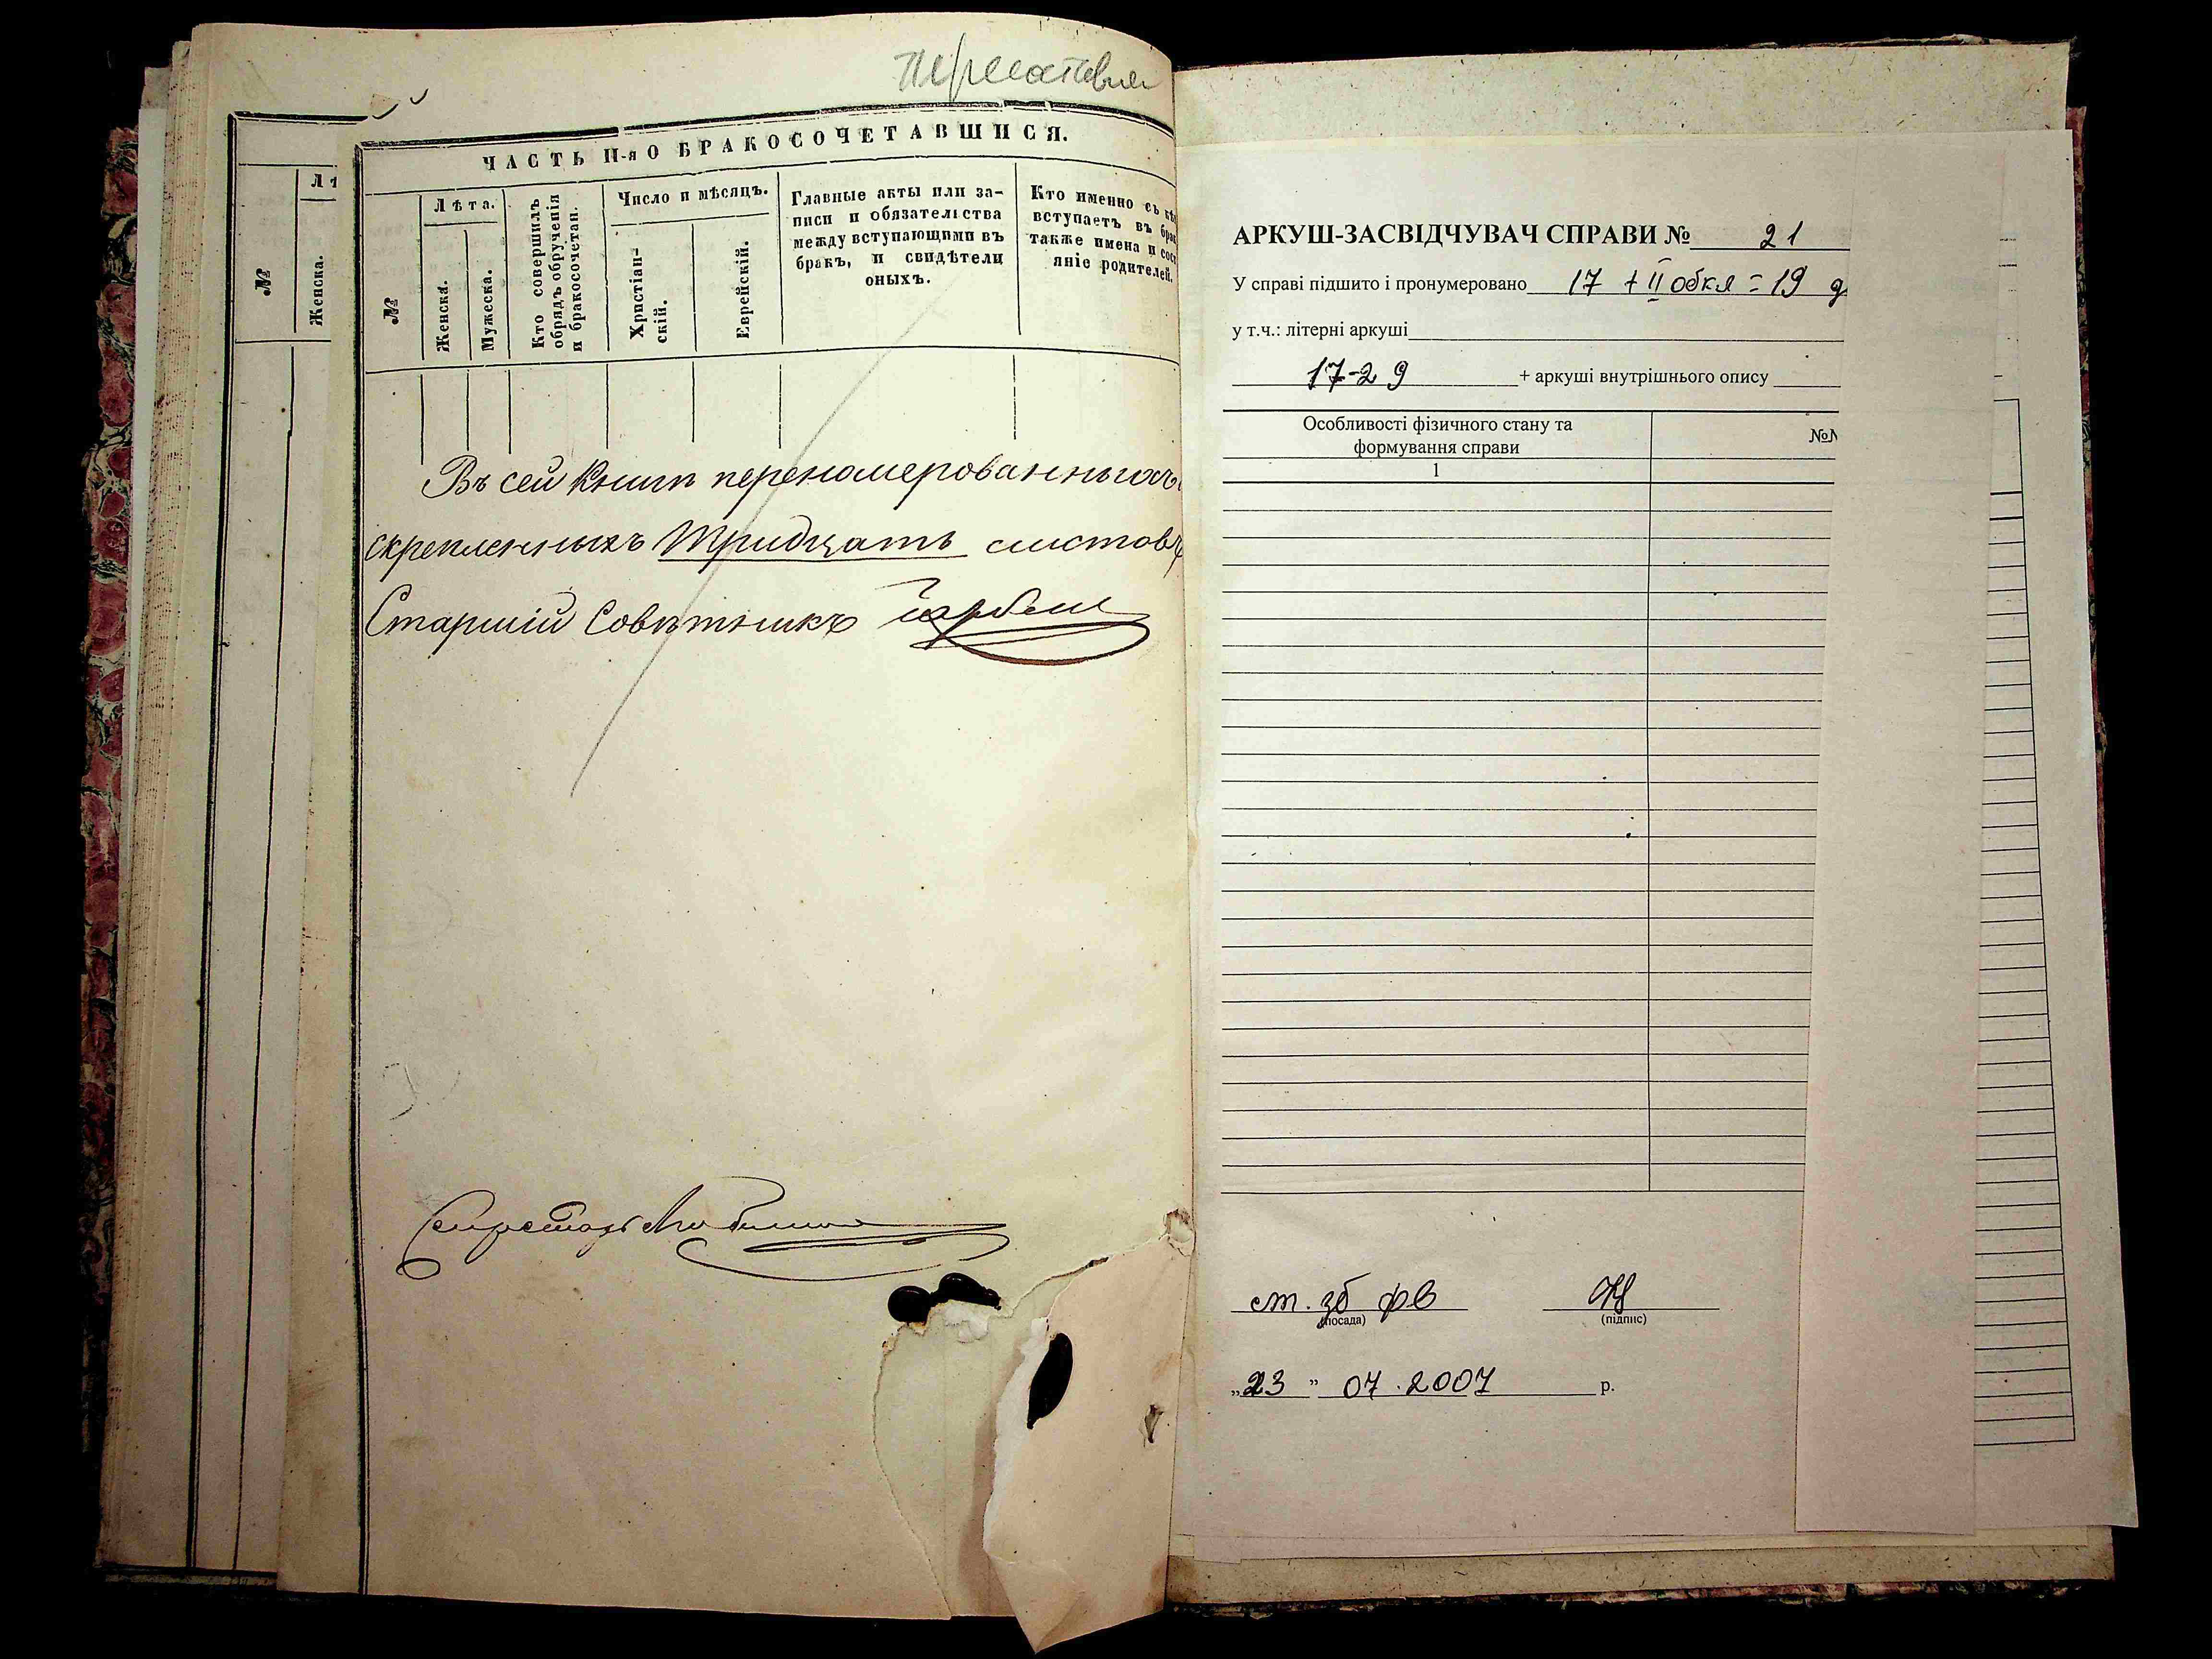 №
Лѣ
Женска.
ЧАСТЬ II-я О БРАКОСОЧЕТАВШИСЯ.
№
Лѣта.
Женска.
Мужеска.
Кто совершилъ
обрядъ обрученія
и бракосочетан.
Число и мѣсяцъ.
Христіан-
скій.
Еврейскій.
Главные акты или за-
писи и обязательства
между вступающими въ
бракъ, и свидѣтели
оныхъ.
Кто именно съ кѣ
вступаетъ въ брак
также имена и сост
яніе родителей.
Въ сей Книгѣ перенумерованныхъ
скрепленныхъ Тридцать листовъ
Старшій Совѣтникъ
Секретарь
АРКУШ-ЗАСВІДЧУВАЧ СПРАВИ № 21
У справі підшито і пронумеровано 17 + II обкл = 19
у т.ч.: літерні аркуші
17-29 + аркуші внутрішнього опису
Особливості фізичного стану та
формування справи
№№
1
ст. зб фв
(посада)
(підпис)
„23” 07.2007 р.